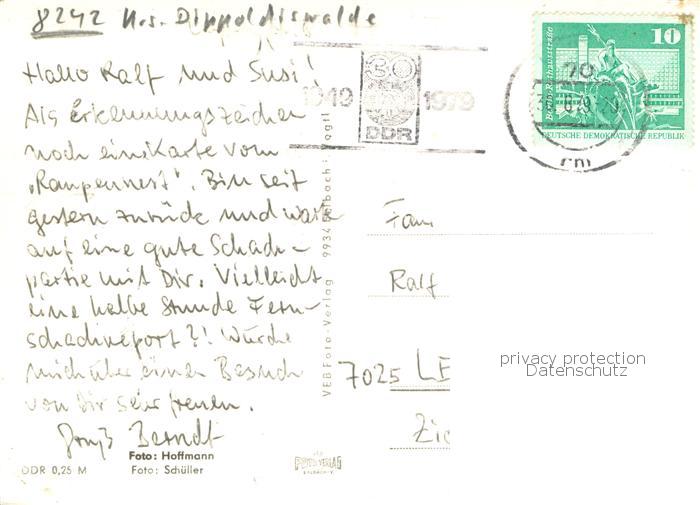 8242 Krs. Dippoldiswalde
Hallo Ralf und Susi!
Als Erkennungszeichen
noch eine Karte vom
"Raupennest". Bin seit
gestern zurück und warte
auf eine gute Schach-
partie mit Dir. Vielleicht
eine halbe Stunde Fern-
schachreport?! Würde
mich über einen Besuch
von Dir sehr freuen.
Gruß Berndt
Foto: Hoffmann
Foto: Schüller
DDR 0,25 M
VEB Foto-Verlag 9934 Erlbach i. Vogtl
FOTO VERLAG
ERLBACH-V.
30
1949 1979
DDR
10
Berlin, Rathausstraße
DEUTSCHE DEMOKRATISCHE REPUBLIK
70
Fam
Ralf
7025 LE
Zic
privacy protection
Datenschutz